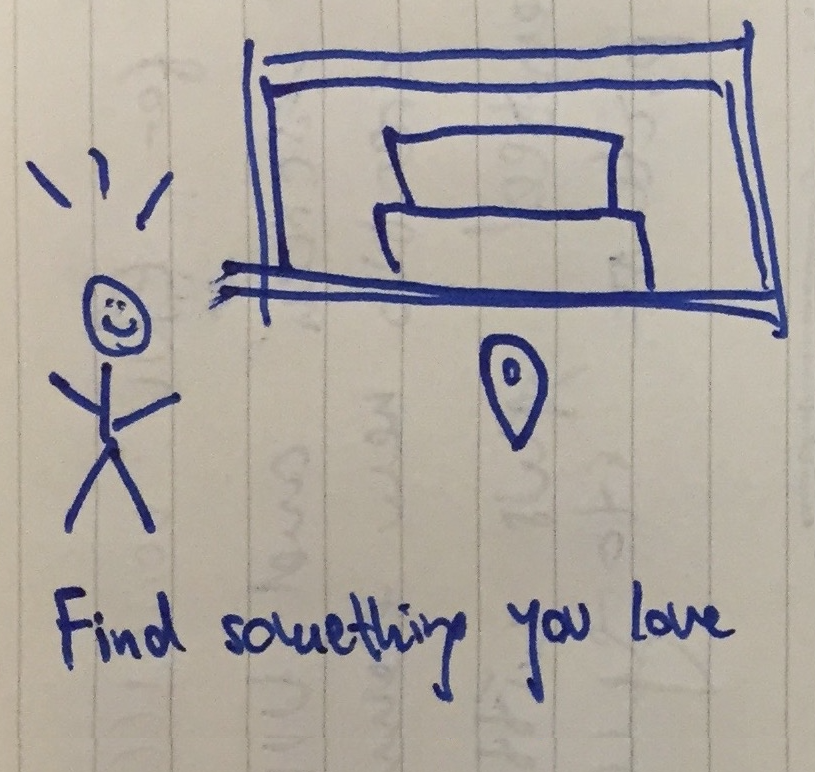 Find something you love